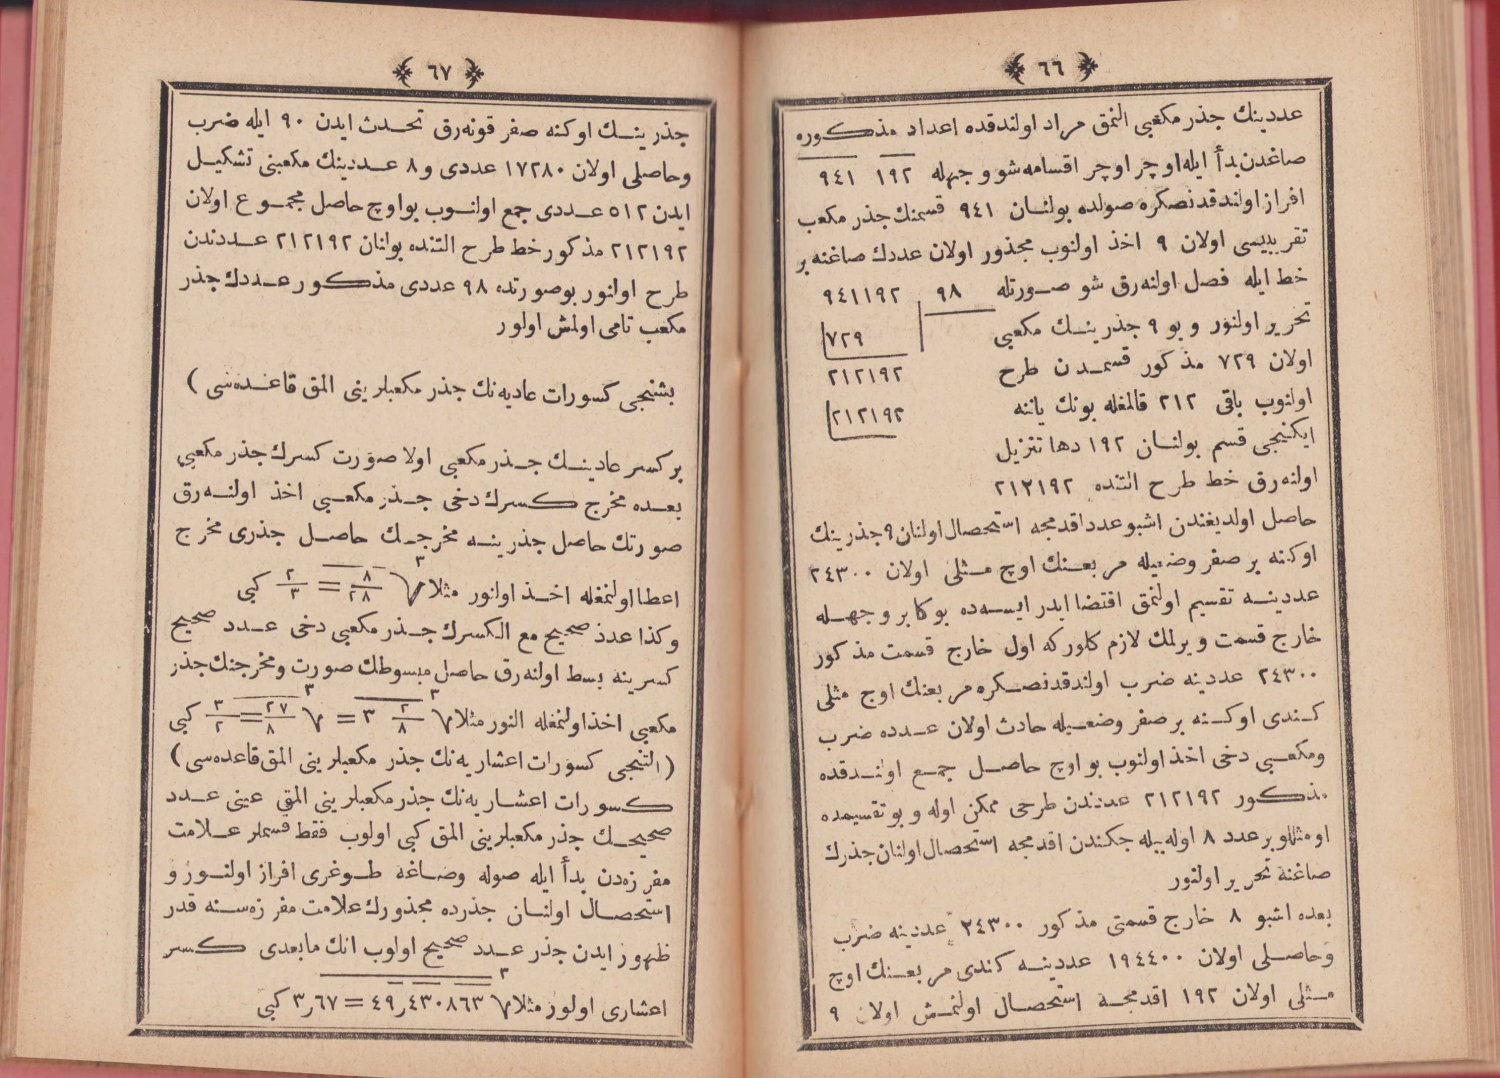 ﴿ ٦٦ ﴾
عددينك جذر مكعبى النمق مراد اولندقده اعداد مذكوره
صاغدن بدأ ايله اوچر اوچر اقسامه شو وجهله ١٩٢ ٩٤١
افراز اولندقدنصكره صولده بولنان ٩٤١ قسمنك جذر مكعب
تقريبيسى اولان ٩ اخذ اولنوب مجذور اولان عددك صاغنه بر
خط ايله فصل اولنه‌رق شو صورتله ٩٨ ٩٤١١٩٢
تحرير اولنور و بو ٩ جذرينك مكعبى ٧٢٩
اولان ٧٢٩ مذكور قسمدن طرح ٢١٢١٩٢
اولنوب باقى ٢١٢ قالمغله بونك ياننه ٢١٢١٩٢
ايكنجى قسم بولنان ١٩٢ دها تنزيل
اولنه‌رق خط طرح التنده ٢١٢١٩٢
حاصل اولديغندن اشبو عدد اقدمجه استحصال اولنان ٩ جذرينك
اوكنه بر صفر وضعيله مربعنك اوچ مثلى اولان ٢٤٣٠٠
عددينه تقسيم اولنمق اقتضا ايدر ايسه‌ده بوكا بر وجهله
خارج قسمت ويرلمك لازم كلور كه اول خارج قسمت مذكور
٢٤٣٠٠ عددينه ضرب اولندقدنصكره مربعنك اوچ مثلى
كندى اوكنه بر صفر وضعيله حادث اولان عدده ضرب
ومكعبى دخى اخذ اولنوب بو اوچ حاصل جمع اولندقده
مذكور ٢١٢١٩٢ عددندن طرحى ممكن اوله و بو تقسيمده
او مثللو بر عدد ٨ اوله بيله جكندن اقدمجه استحصال اولنان جذرك
صاغنه تحرير اولنور
بعده اشبو ٨ خارج قسمتى مذكور ٢٤٣٠٠ عددينه ضرب
وحاصلى اولان ١٩٤٤٠٠ عددينه كندى مربعنك اوچ
مثلى اولان ١٩٢ اقدمجه استحصال اولنمش اولان ٩
﴿ ٦٧ ﴾
جذرينك اوكنه صفر قونه‌رق تحدث ايدن ٩٠ ايله ضرب
وحاصلى اولان ١٧٢٨٠ عددى و ٨ عددينك مكعبنى تشكيل
ايدن ٥١٢ عددى جمع اولنوب بو اوچ حاصل مجموع اولان
٢١٢١٩٢ مذكور خط طرح التنده بولنان ٢١٢١٩٢ عددندن
طرح اولنور بو صورتده ٩٨ عددى مذكور عددك جذر
مكعب تامى اولمش اولور
بشنجى كسورات عاديه‌نك جذر مكعبلرينى المق قاعده‌سى )
بر كسر عادينك جذر مكعبى اولا صورت كسرك جذر مكعبى
بعده مخرج كسرك دخى جذر مكعبى اخذ اولنه‌رق
صورتك حاصل جذرينه مخرجك حاصل جذرى مخرج
اعطا اولنمغله اخذ اولنور مثلا ³√٨/٢٨ = ٢/٣ كبى
وكذا عدد صحيح مع الكسرك جذر مكعبى دخى عدد صحيح
كسرينه بسط اولنه‌رق حاصل مبسوطك صورت ومخرجنك جذر
مكعبى اخذ اولنمغله النور مثلا ³√٣ ٢/٨ = ³√٢٧/٨ = ٣/٢ كبى
( التنجى كسورات اعشاريه‌نك جذر مكعبلرينى المق قاعده‌سى )
كسورات اعشاريه‌نك جذر مكعبلرينى المق عينى عدد
صحيحك جذر مكعبلرينى المق كبى اولوب فقط قسملر علامت
مفرزه‌دن بدأ ايله صوله وصاغه طوغرى افراز اولنور و
استحصال اولنان جذرده مجذورك علامت مفرزه‌سنه قدر
ظهور ايدن جذر عدد صحيح اولوب انك مابعدى كسر
اعشارى اولور مثلا ³√٤٩٫٤٣٠٨٦٣ = ٣٫٦٧ كبى